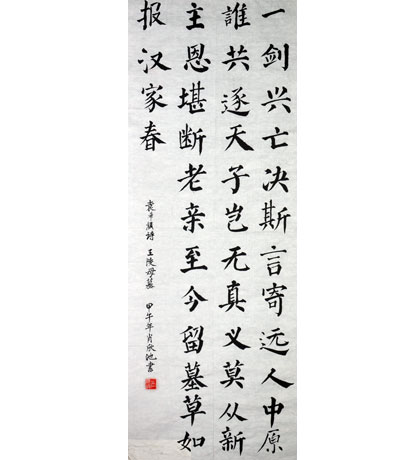 一剑兴亡决斯言寄远人中原
誰共逐天子岂无真义莫从新
主恩堪断老亲至今留墓草如
报汉家春
王陵母墓 甲午年肖欣池書